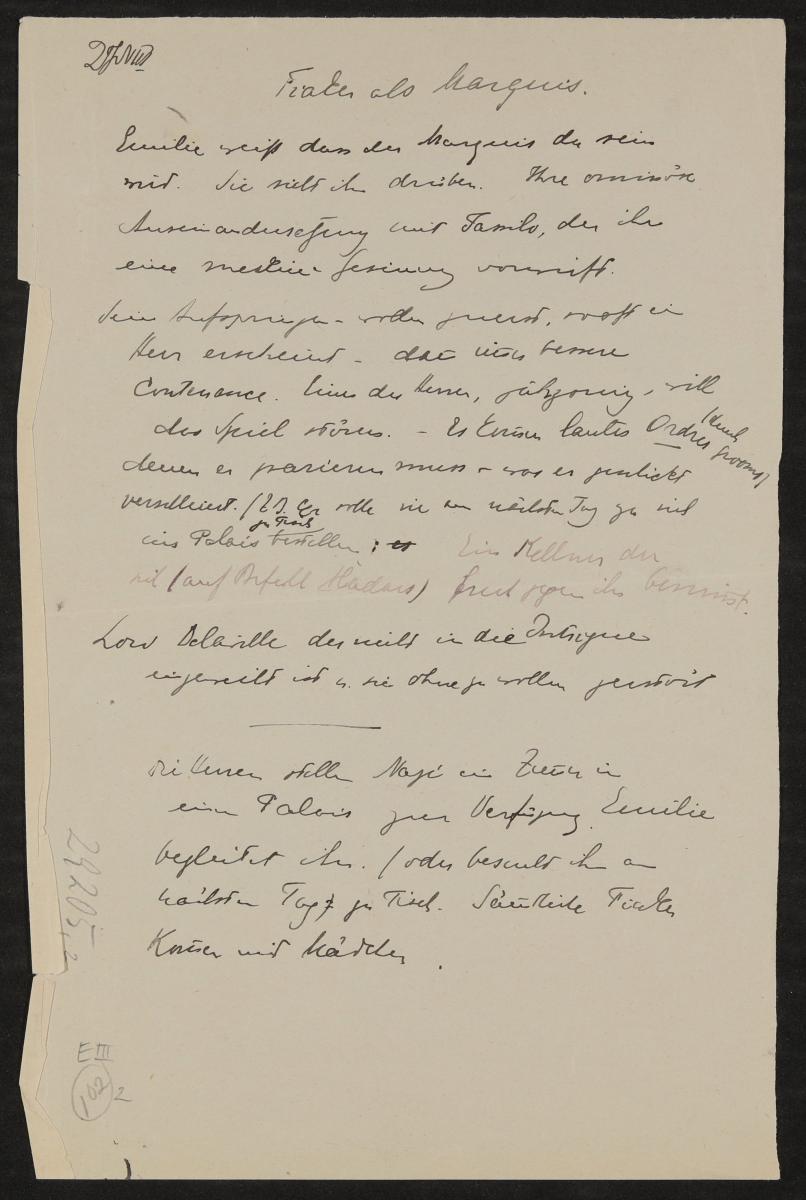 Fiaker als Marquis.
Emilie weiß dass der Marquis da sein
wird. Sie sieht ihn drüben. Ihre ominöse
Auseinandersetzung mit Tassilo, der ihr
eine Gesinnung vorwirft.
Sein Aufspringen-wollen zuerst, sooft ein
Herr erscheint – dann immer bessere
Contenance. Einer der Herren, jähzornig, will
das Spiel stören. – Es kommen lautes Ordres (durch Grooms)
denen er parieren muss – was er geschickt
verschleiert. (z.B. Er solle sie am nächsten Tag zu sich
zu Tisch
ins Palais bestellen; es Ein Kellner der
sich (auf Befehl ) frech gegen ihn benimmt.
Lord Delaville der nicht in die Intrigue
eingeweiht ist u. sie ohne zu wollen zerstört
Die Herren stellen Nazi ein Zimmer in
einem Palais zur Verfügung. Emilie
begleitet ihn. (oder besucht ihn am
nächsten Tag zu Tisch. Sämtliche Fiaker
Kommen mit Mädchen.
29205,2
E III
102
2